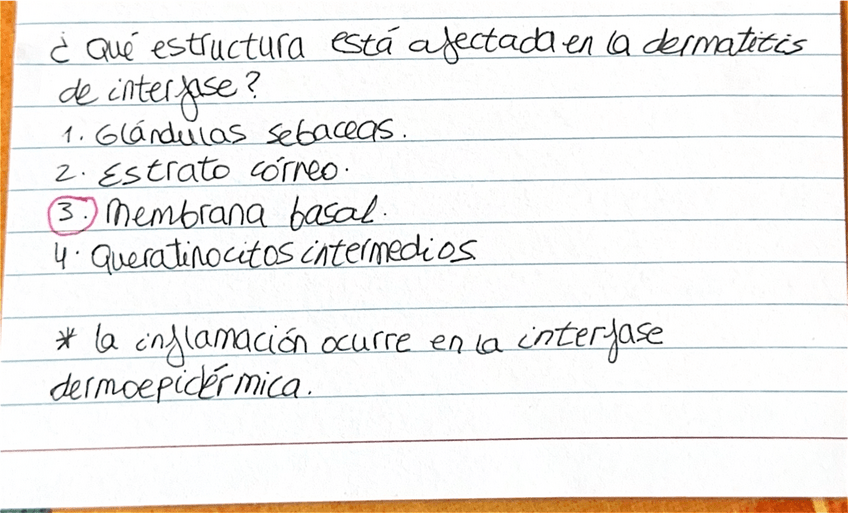 ¿Qué estructura está afectada en la dermatitis
de interfase?
1. Glándulas sebaceas.
2. Estrato córneo.
3. Membrana basal.
4. Queratinocitos intermedios
* la inflamación ocurre en la interfase
dermoepidérmica.